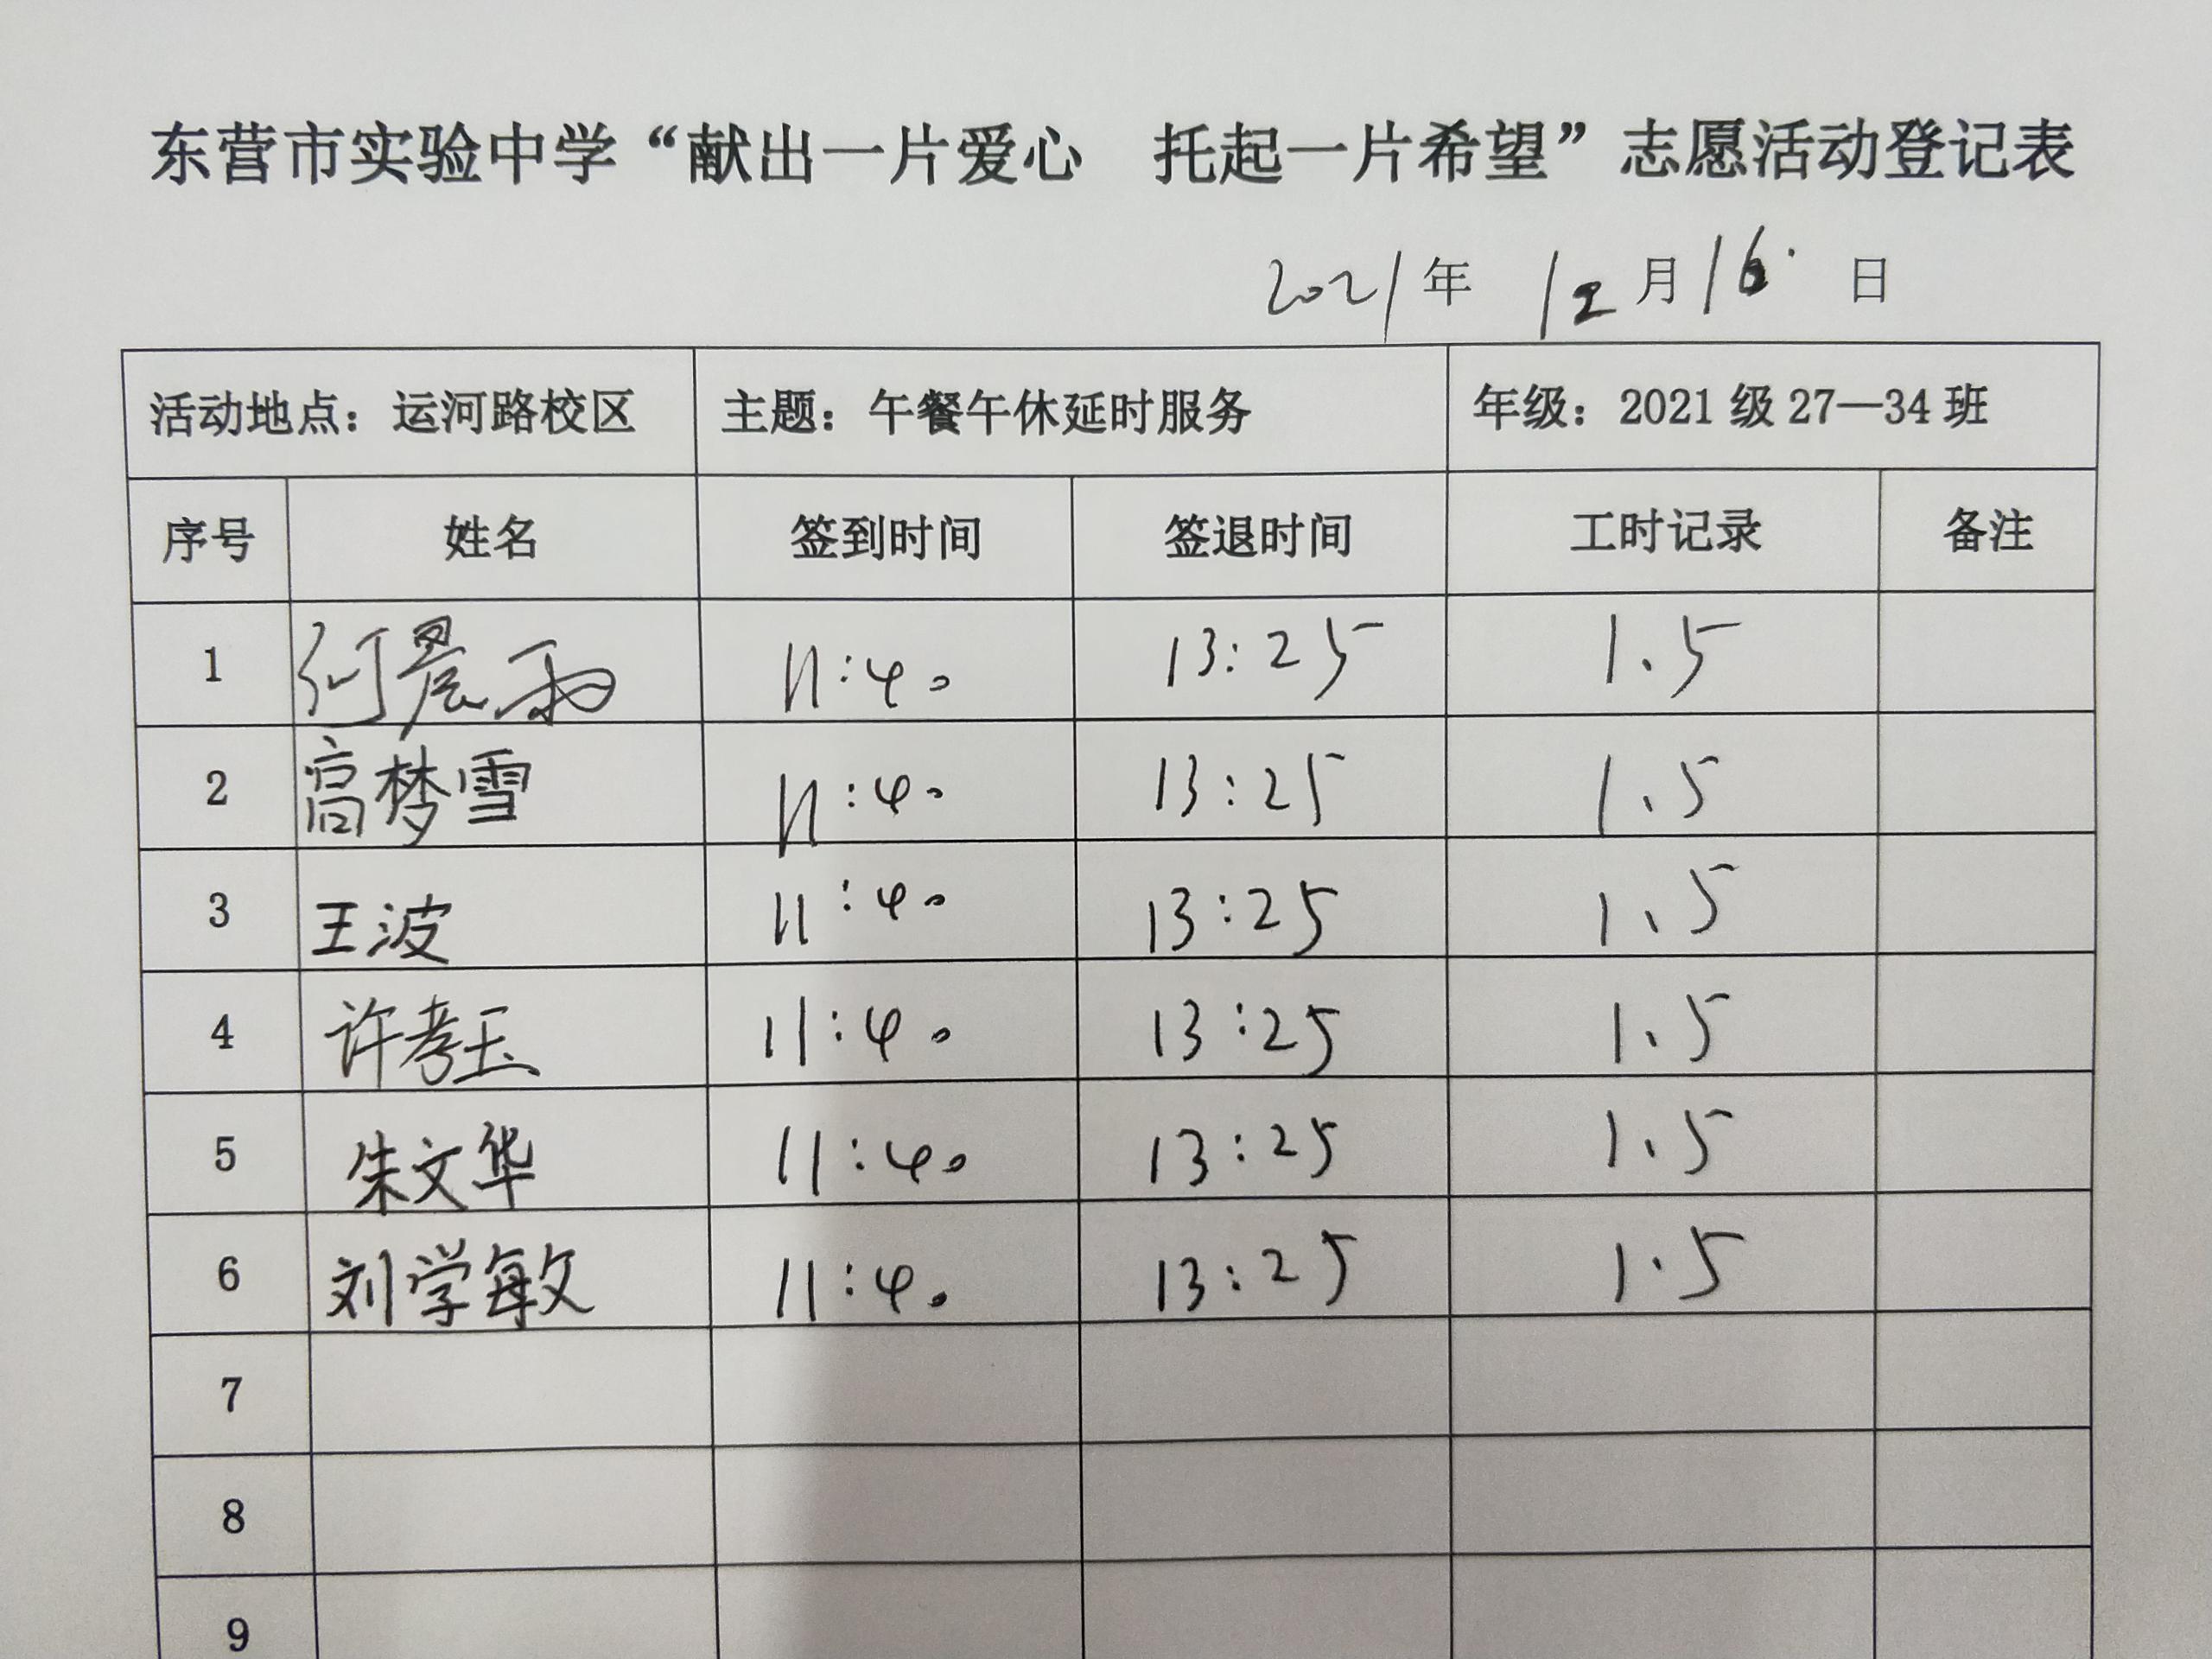 东营市实验中学“献出一片爱心 托起一片希望”志愿活动登记表
2021年 12月16日
活动地点：运河路校区 主题：午餐午休延时服务 年级：2021级27—34班
序号 姓名 签到时间 签退时间 工时记录 备注
1 何晨雨 11:40 13:25 1.5
2 高梦雪 11:40 13:25 1.5
3 王波 11:40 13:25 1.5
4 许孝玉 11:40 13:25 1.5
5 朱文华 11:40 13:25 1.5
6 刘学敏 11:40 13:25 1.5
7
8
9